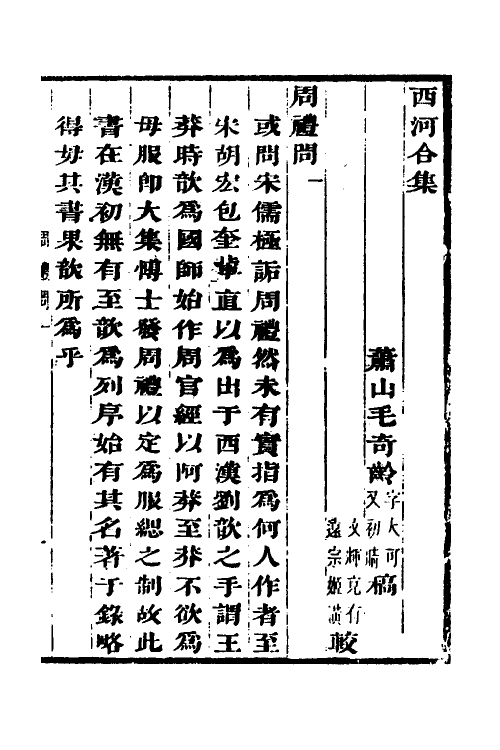 西河合集
蕭山毛奇齡字大可又初晴稿
文輝充有遠宗姬潢較
周禮問一
或問宋儒極詬周禮然未有實指為何人作者至
宋胡宏包奎輩直以為出于西漢劉歆之手謂王
莽時歆為國師始作周官經以阿莽至莽不欲為
母服卽大集愽士發周禮以定為服緦之制故此
書在漢初無有至歆為列序始有其名著于錄略
得毋其書果歆所為乎
周禮問一